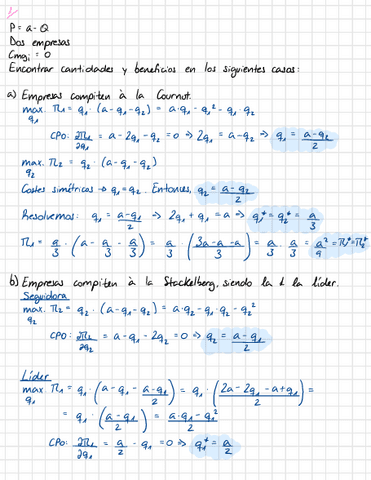 1
P = a - Q
Dos empresas
Cmgᵢ = 0
Encontrar cantidades y beneficios en los siguientes casos:
a) Empresas compiten à la Cournot.
max. π₁ = q₁ · (a - q₁ - q₂) = a·q₁ - q₁² - q₁·q₂
q₁
CPO: ∂π₁/∂q₁ = a - 2q₁ - q₂ = 0 → 2q₁ = a - q₂ → q₁ = (a - q₂)/2
max. π₂ = q₂ · (a - q₁ - q₂)
q₂
Costes simétricos → q₁ = q₂. Entonces, q₂ = (a - q₁)/2
Resolvemos: q₁ = (a - q₁)/2 → 2q₁ + q₁ = a → q₁* = q₂* = a/3
π₁ = a/3 · (a - a/3 - a/3) = a/3 · ((3a - a - a)/3) = a/3 · a/3 = a²/9 = π₁* = π₂*
b) Empresas compiten à la Stackelberg, siendo la 1 la líder.
Seguidora
max. π₂ = q₂ · (a - q₁ - q₂) = a·q₂ - q₁·q₂ - q₂²
q₂
CPO: ∂π₂/∂q₂ = a - q₁ - 2q₂ = 0 → q₂ = (a - q₁)/2
Líder
max. π₁ = q₁ · (a - q₁ - (a - q₁)/2) = q₁ · ((2a - 2q₁ - a + q₁)/2) =
q₁
= q₁ · ((a - q₁)/2) = (a·q₁ - q₁²)/2
CPO: ∂π₁/∂q₁ = a/2 - q₁ = 0 → q₁* = a/2